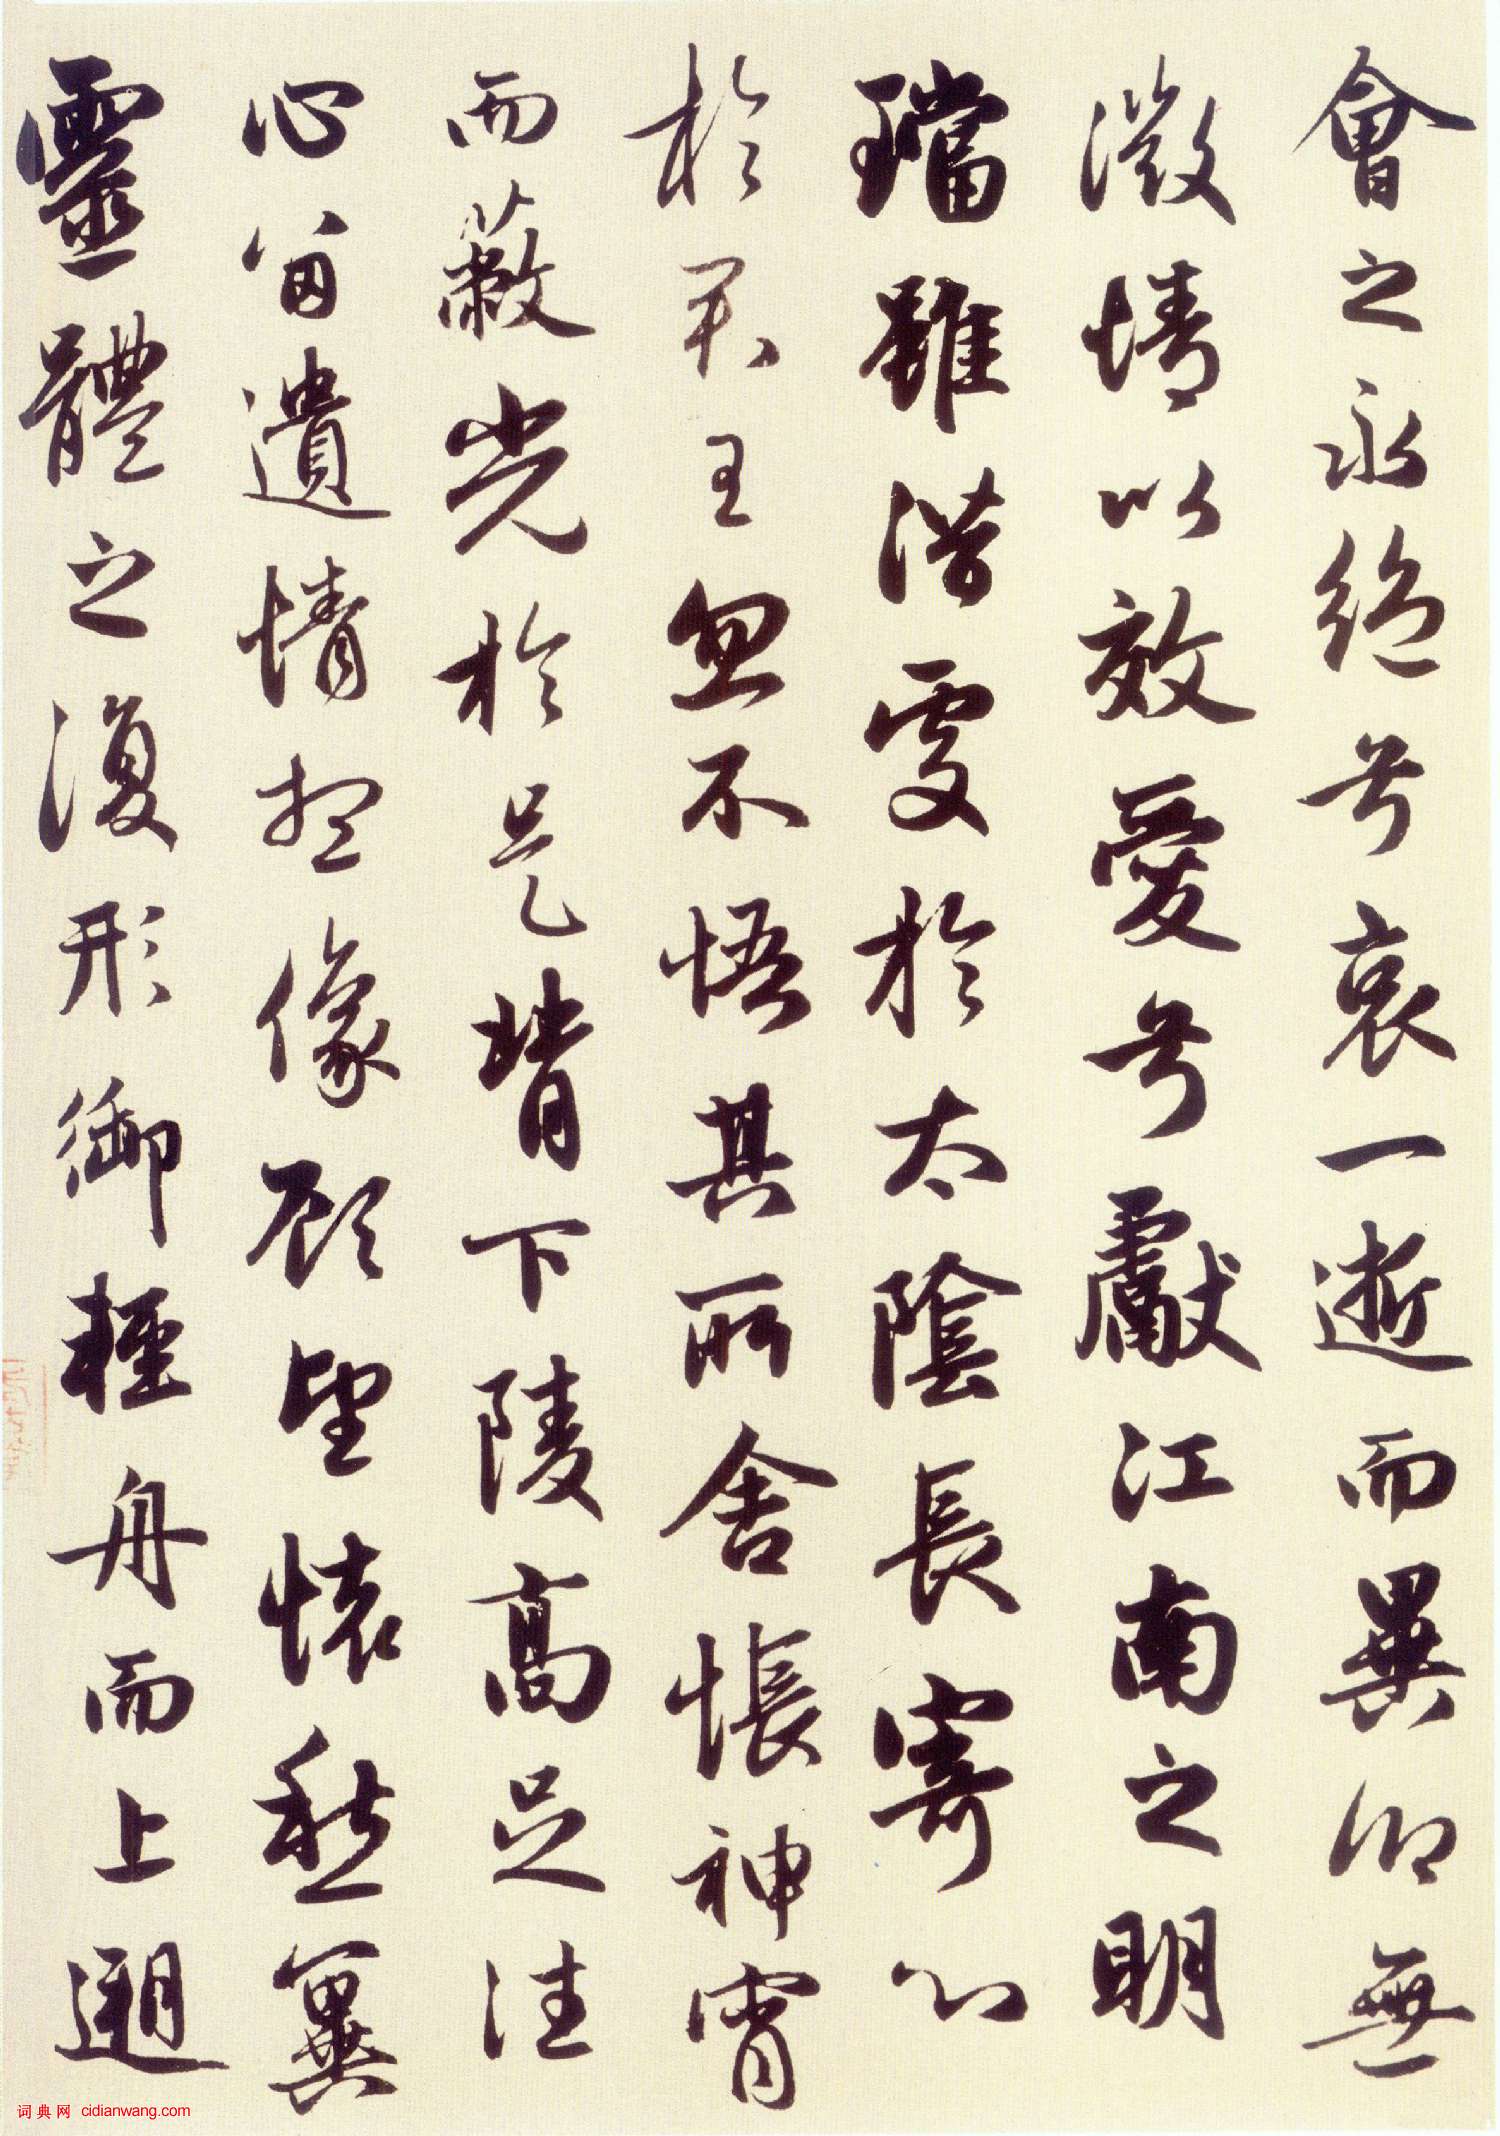 會之永絕兮哀一逝而異鄉無
微情以效愛兮獻江南之明
璫雖潛處於太陰長寄心
於君王忽不悟其所舍悵神宵
而蔽光於是背下陵高足往
心留遺情想像顧望懷愁冀
靈體之復形御輕舟而上遡
词典网 cidianwang.com